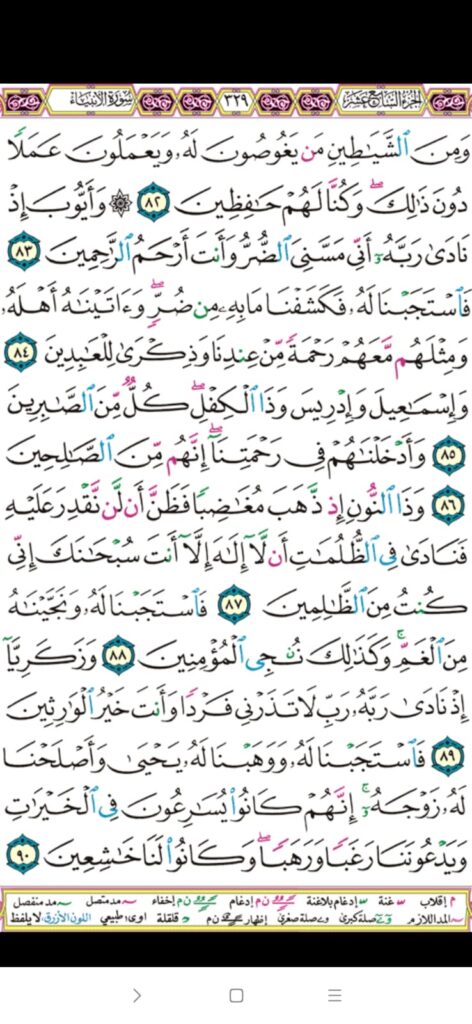 الجزء السابع عشر ٣٢٩ سورة الأنبياء
وَمِنَ ٱلشَّيَٰطِينِ مَن يَغُوصُونَ لَهُۥ وَيَعۡمَلُونَ عَمَلٗا
دُونَ ذَٰلِكَۖ وَكُنَّا لَهُمۡ حَٰفِظِينَ ٨٢ ۞ وَأَيُّوبَ إِذۡ
نَادَىٰ رَبَّهُۥٓ أَنِّي مَسَّنِيَ ٱلضُّرُّ وَأَنتَ أَرۡحَمُ ٱلرَّٰحِمِينَ ٨٣
فَٱسۡتَجَبۡنَا لَهُۥ فَكَشَفۡنَا مَا بِهِۦ مِن ضُرّٖۖ وَءَاتَيۡنَٰهُ أَهۡلَهُۥ
وَمِثۡلَهُم مَّعَهُمۡ رَحۡمَةٗ مِّنۡ عِندِنَا وَذِكۡرَىٰ لِلۡعَٰبِدِينَ ٨٤
وَإِسۡمَٰعِيلَ وَإِدۡرِيسَ وَذَا ٱلۡكِفۡلِۖ كُلّٞ مِّنَ ٱلصَّٰبِرِينَ
٨٥ وَأَدۡخَلۡنَٰهُمۡ فِي رَحۡمَتِنَآۖ إِنَّهُم مِّنَ ٱلصَّٰلِحِينَ
٨٦ وَذَا ٱلنُّونِ إِذ ذَّهَبَ مُغَٰضِبٗا فَظَنَّ أَن لَّن نَّقۡدِرَ عَلَيۡهِ
فَنَادَىٰ فِي ٱلظُّلُمَٰتِ أَن لَّآ إِلَٰهَ إِلَّآ أَنتَ سُبۡحَٰنَكَ إِنِّي
كُنتُ مِنَ ٱلظَّٰلِمِينَ ٨٧ فَٱسۡتَجَبۡنَا لَهُۥ وَنَجَّيۡنَٰهُ
مِنَ ٱلۡغَمِّۚ وَكَذَٰلِكَ نُـۨجِي ٱلۡمُؤۡمِنِينَ ٨٨ وَزَكَرِيَّآ
إِذۡ نَادَىٰ رَبَّهُۥ رَبِّ لَا تَذَرۡنِي فَرۡدٗا وَأَنتَ خَيۡرُ ٱلۡوَٰرِثِينَ
٨٩ فَٱسۡتَجَبۡنَا لَهُۥ وَوَهَبۡنَا لَهُۥ يَحۡيَىٰ وَأَصۡلَحۡنَا
لَهُۥ زَوۡجَهُۥٓۚ إِنَّهُمۡ كَانُواْ يُسَٰرِعُونَ فِي ٱلۡخَيۡرَٰتِ
وَيَدۡعُونَنَا رَغَبٗا وَرَهَبٗاۖ وَكَانُواْ لَنَا خَٰشِعِينَ ٩٠
م إقلاب غنة إدغام بلاغنة ن م إدغام ن م إخفاء مد متصل مد منفصل
المد اللازم صلة كبرى صلة صغرى إظهار ن م قلقلة اوى طبيعي اللون الأزرق لا يلفظ